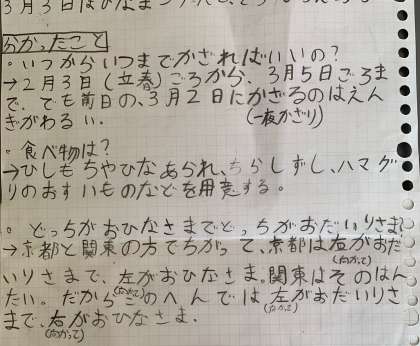 3月3日はひなま
分かったこと
・いつからいつまでかざればいいの?
→2月3日(立春)ごろから、3月5日ごろま
で、でも前日の、3月2日にかざるのはえん
ぎがわるい。(一夜かざり)
・食べ物は?
→ひしもちやひなあられ、ちらしずし、ハマグ
りのおすいものなどを用意する。
・どっちがおひなさまでどっちがおだいりさま?
→京都と関東の方でちがって、京都は右がおだ
(むかって)
いりさまで、左がおひなさま。関東はそのはん
たい。だからこのへんでは左がおだいりさ
(むかって)
(むかって)
まで、右がおひなさま。
(むかって)